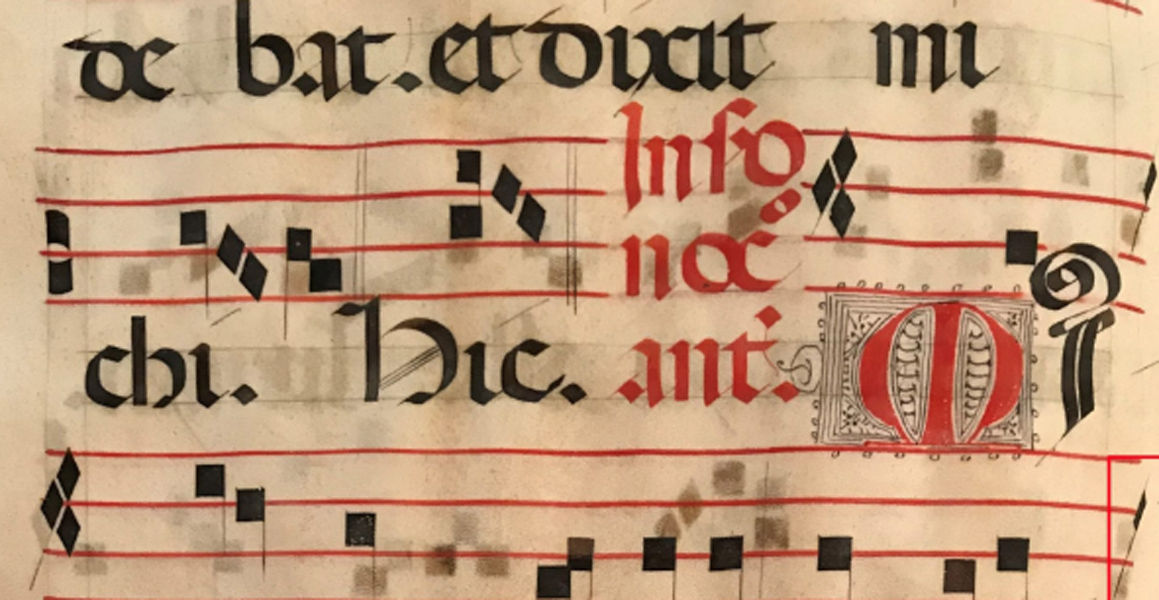 de bat. et dixit mi
In ſc̄o
noc̄
chi. Hic. ant̄. MI